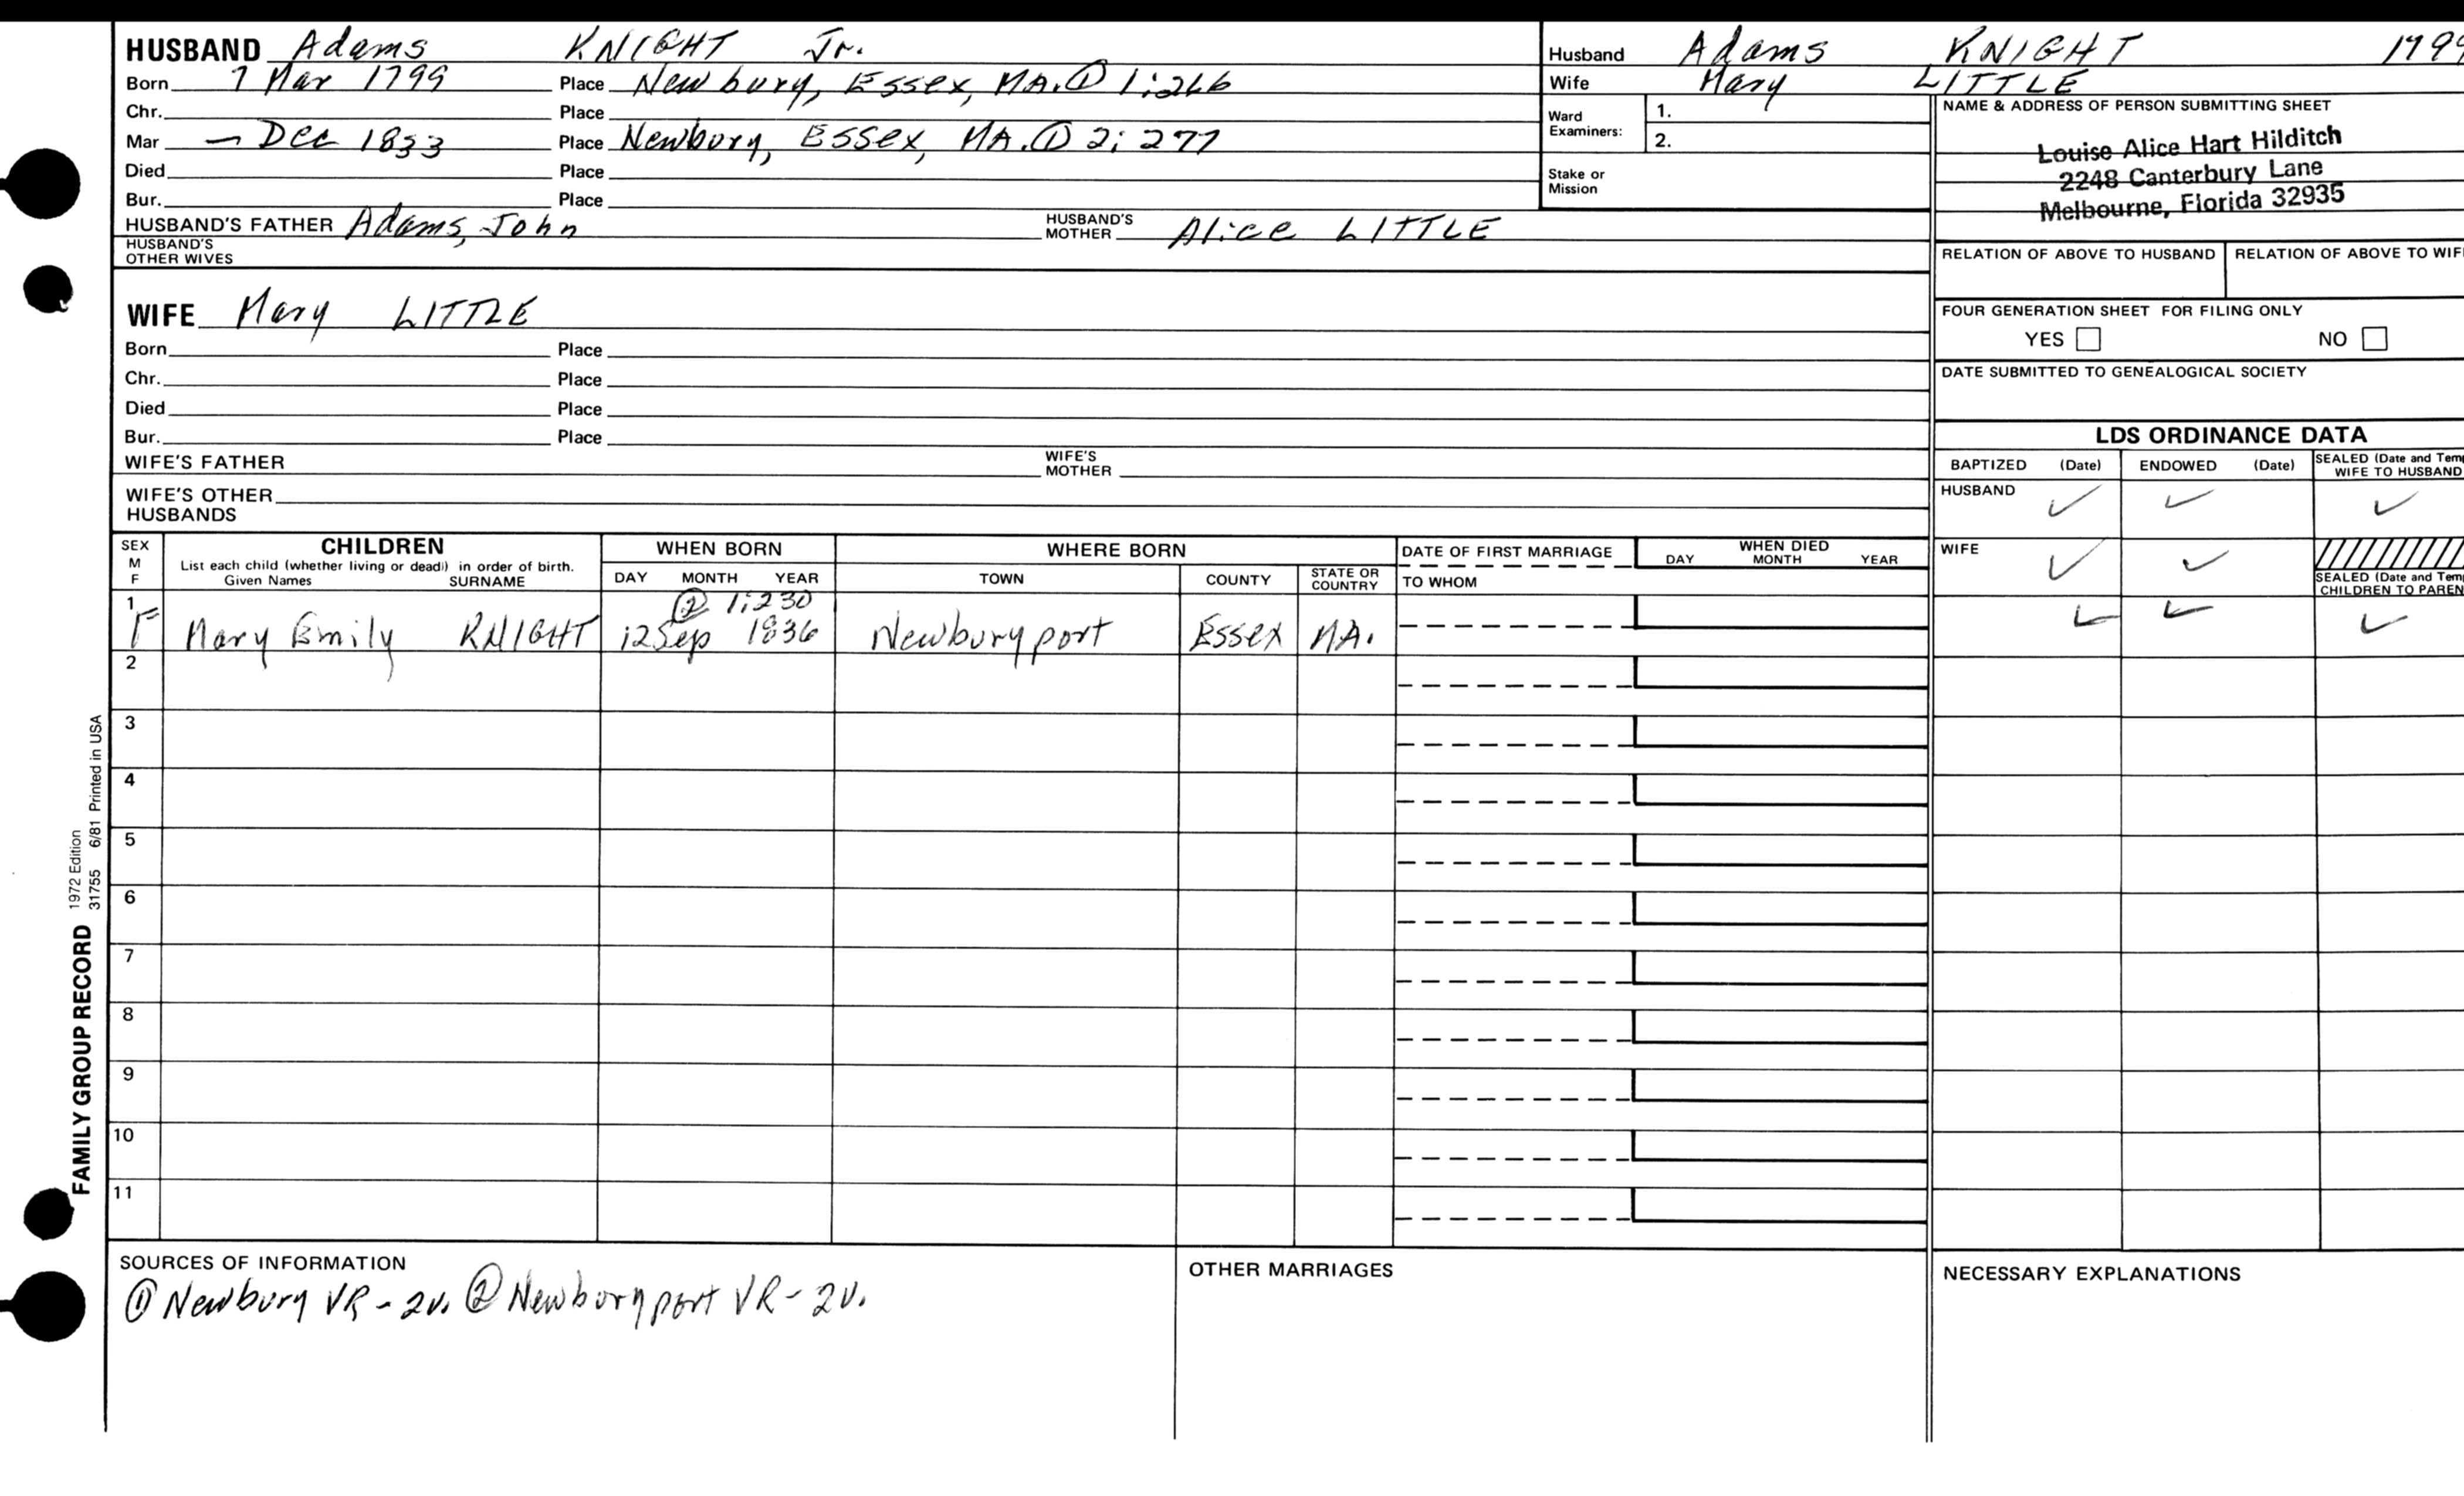 HUSBAND Adams KNIGHT Jr.
Born 7 Mar 1799 Place Newbury, Essex, MA. ① 1:266
Chr. Place
Mar — Dec 1833 Place Newbury, Essex, MA. ① 2: 277
Died Place
Bur. Place
HUSBAND'S FATHER Adams, John HUSBAND'S MOTHER Alice LITTLE
HUSBAND'S OTHER WIVES
Husband Adams KNIGHT 1799
Wife Mary LITTLE
Ward Examiners: 1.
2.
Stake or Mission
NAME & ADDRESS OF PERSON SUBMITTING SHEET
Louise Alice Hart Hilditch
2248 Canterbury Lane
Melbourne, Florida 32935
RELATION OF ABOVE TO HUSBAND RELATION OF ABOVE TO WIF
FOUR GENERATION SHEET FOR FILING ONLY
YES NO
DATE SUBMITTED TO GENEALOGICAL SOCIETY
WIFE Mary LITTLE
Born Place
Chr. Place
Died Place
Bur. Place
WIFE'S FATHER WIFE'S MOTHER
WIFE'S OTHER HUSBANDS
LDS ORDINANCE DATA
BAPTIZED (Date) ENDOWED (Date) SEALED (Date and Tem
WIFE TO HUSBAND
HUSBAND ✓ ✓ ✓
WIFE ✓ ✓
SEALED (Date and Tem
CHILDREN TO PAREN
SEX M F
CHILDREN
List each child (whether living or dead) in order of birth.
Given Names SURNAME
WHEN BORN
DAY MONTH YEAR
WHERE BORN
TOWN COUNTY STATE OR COUNTRY
DATE OF FIRST MARRIAGE
TO WHOM
WHEN DIED
DAY MONTH YEAR
② 1:230
1 F Mary Emily KNIGHT 12 Sep 1836 Newburyport Essex MA. ✓ ✓ ✓
2
3
4
5
6
7
8
9
10
11
FAMILY GROUP RECORD 1972 Edition
31755 6/81 Printed in USA
SOURCES OF INFORMATION
① Newbury VR - 2v. ② Newburyport VR - 2v.
OTHER MARRIAGES
NECESSARY EXPLANATIONS